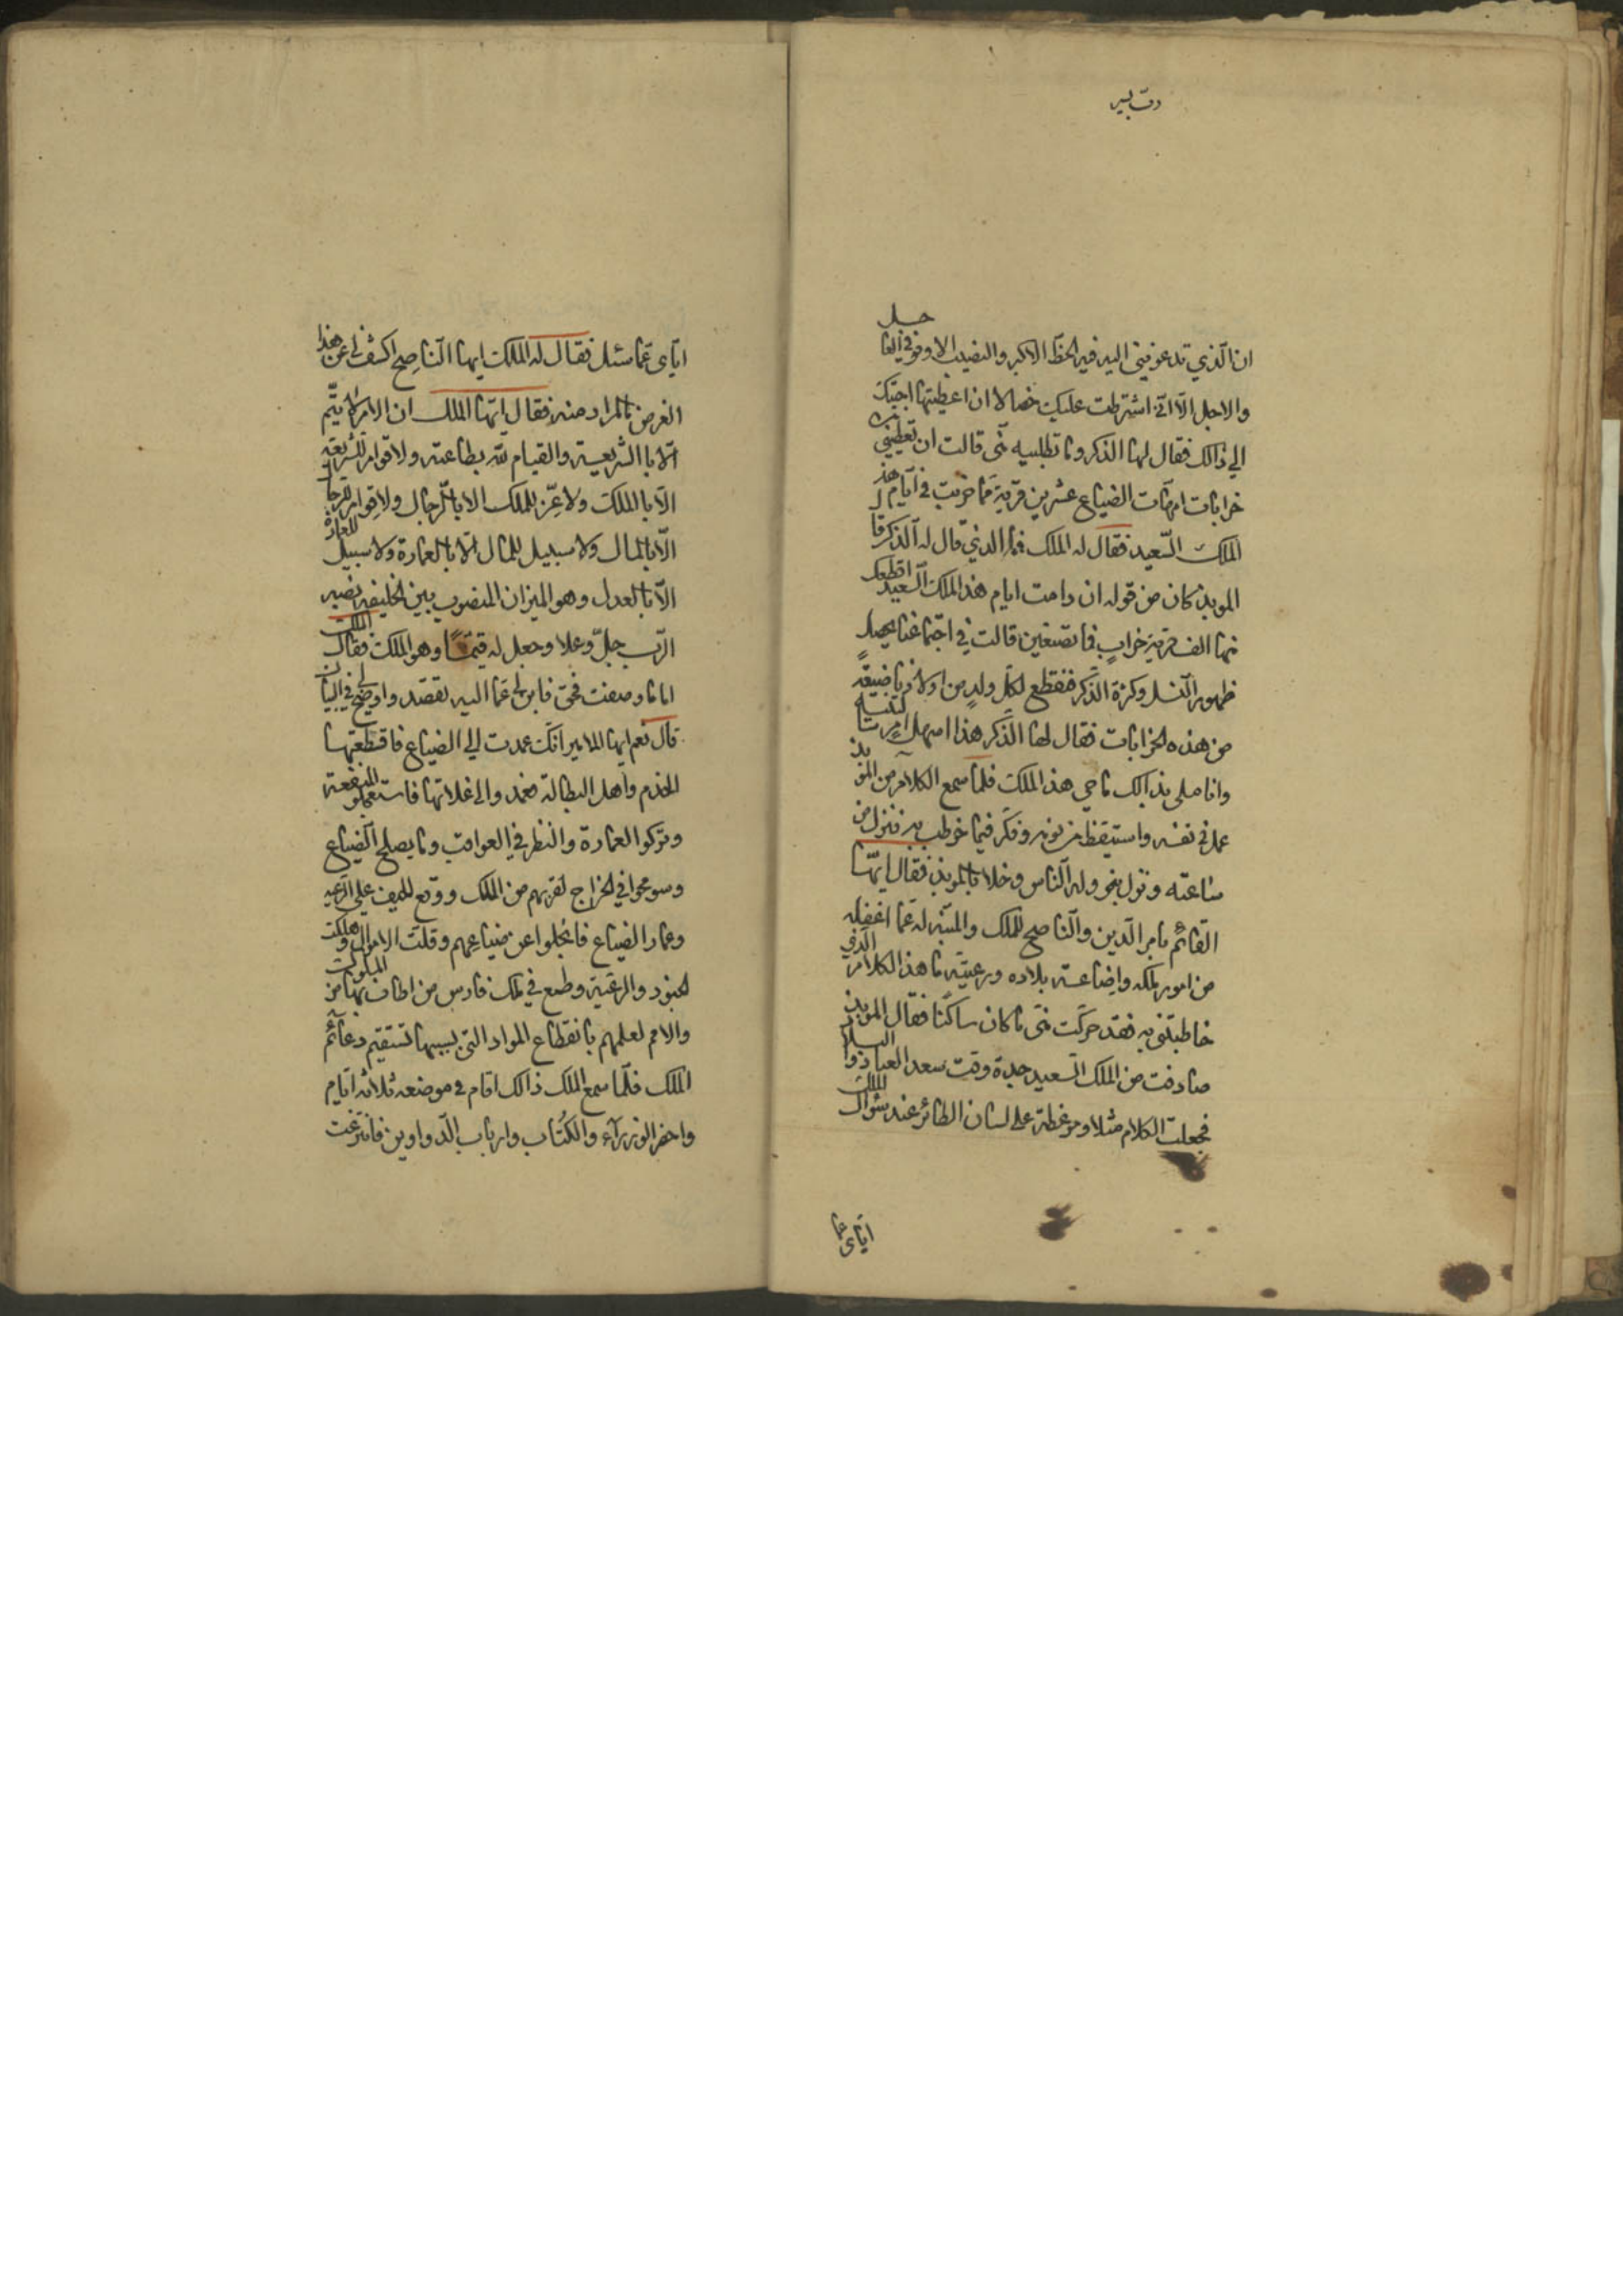 دق بسير
ان الذي تدعونني اليه فيه الحظ الاكبر والنصيب الاوفر في العاجل
والاجل الا انى اشترطت عليك خصالا ان اعطيتها اجبتك
الي ذالك فقال لها الذكر وما تطلبيه منى قالت ان تعطيني
خرابات امهات الضياع عشرين قرية مما خربت في ايام هذ
الملك السعيد فقال له الملك فما الذي قال له الذكر قا
الموبذ كان من قوله ان دامت ايام هذ الملك السعيد اقطعك
منها الف قرية خراب فما تصنعين قالت في اجتماعنا يحصل
ظهور النسل وكثرة الذكر فنقطع لكل ولد من اولادنا ضيعة
من هذه الخرابات فقال لها الذكر هذا اسهل امر
وانا ملى بذالك ما حي هذ الملك فلما سمع الكلام من الموبذ
عمل في نفسه واستيقظ من نومه وفكر فيما خوطب به فنزل من
ساعته ونزل بنحوله الناس وخلا بالموبذ فقال ايها
القائم بامر الدين والناصح للملك والمنبه له عما اغفله
من امور ملكه واضاعة بلاده ورعيته ما هذ الكلام الذي
خاطبتنى به فقد حركت منى ما كان ساكنا فقال الموبذ
صادفت من الملك السعيد جدة وقت سعد العباد والبلاد
فجعلت الكلام مثلا وموعظة على لسان الطائر عند سؤال الملك
اياى عما
اياى عما سئل فقال له الملك ايها الناصح اكشف لى عن هذا
الغرض ما المراد منه فقال ايها الملك ان الامر لا يتم
الا با الشريعة والقيام لله بطاعته ولا قوام للشريعة
الا با الملك ولا عز للملك الا بالرجال ولا قوام للرجال
الا بالمال ولا سبيل للمال الا بالعمارة ولا سبيل للعمارة
الا بالعدل وهو الميزان المنصوب بين الخليقه نصبه
الرب جل وعلا وجعل له قيمًا وهو الملك فقال الملك
اما ما وصفت فحق فابن لى عما اليه تقصد واوضح لى في البيان
قال نعم ايها الملاير انك عمدت الي الضياع فاقتطعتها
الخدم واهل البطالة فعمدوا الى غلاتها فاستعجلو المنفعة
وتركوا العمارة والنظر في العواقب وما يصلح الضياع
وسومحوا في الخراج لقربهم من الملك ووقع للحيف على الرعيه
وعمار الضياع فانجلوا عن ضياعهم وقلت الاموال وهلكت
الجنود والرعية وطمع في ملك فارس من اطاف بها من الملوك
والامم لعلمهم بانقطاع المواد التى بسببها تستقيم دعائم
الملك فلما سمع الملك ذالك اقام في موضعه ثلاثه ايام
واحضر الوزرآء والكتاب وارباب الدواوين فانتزعت